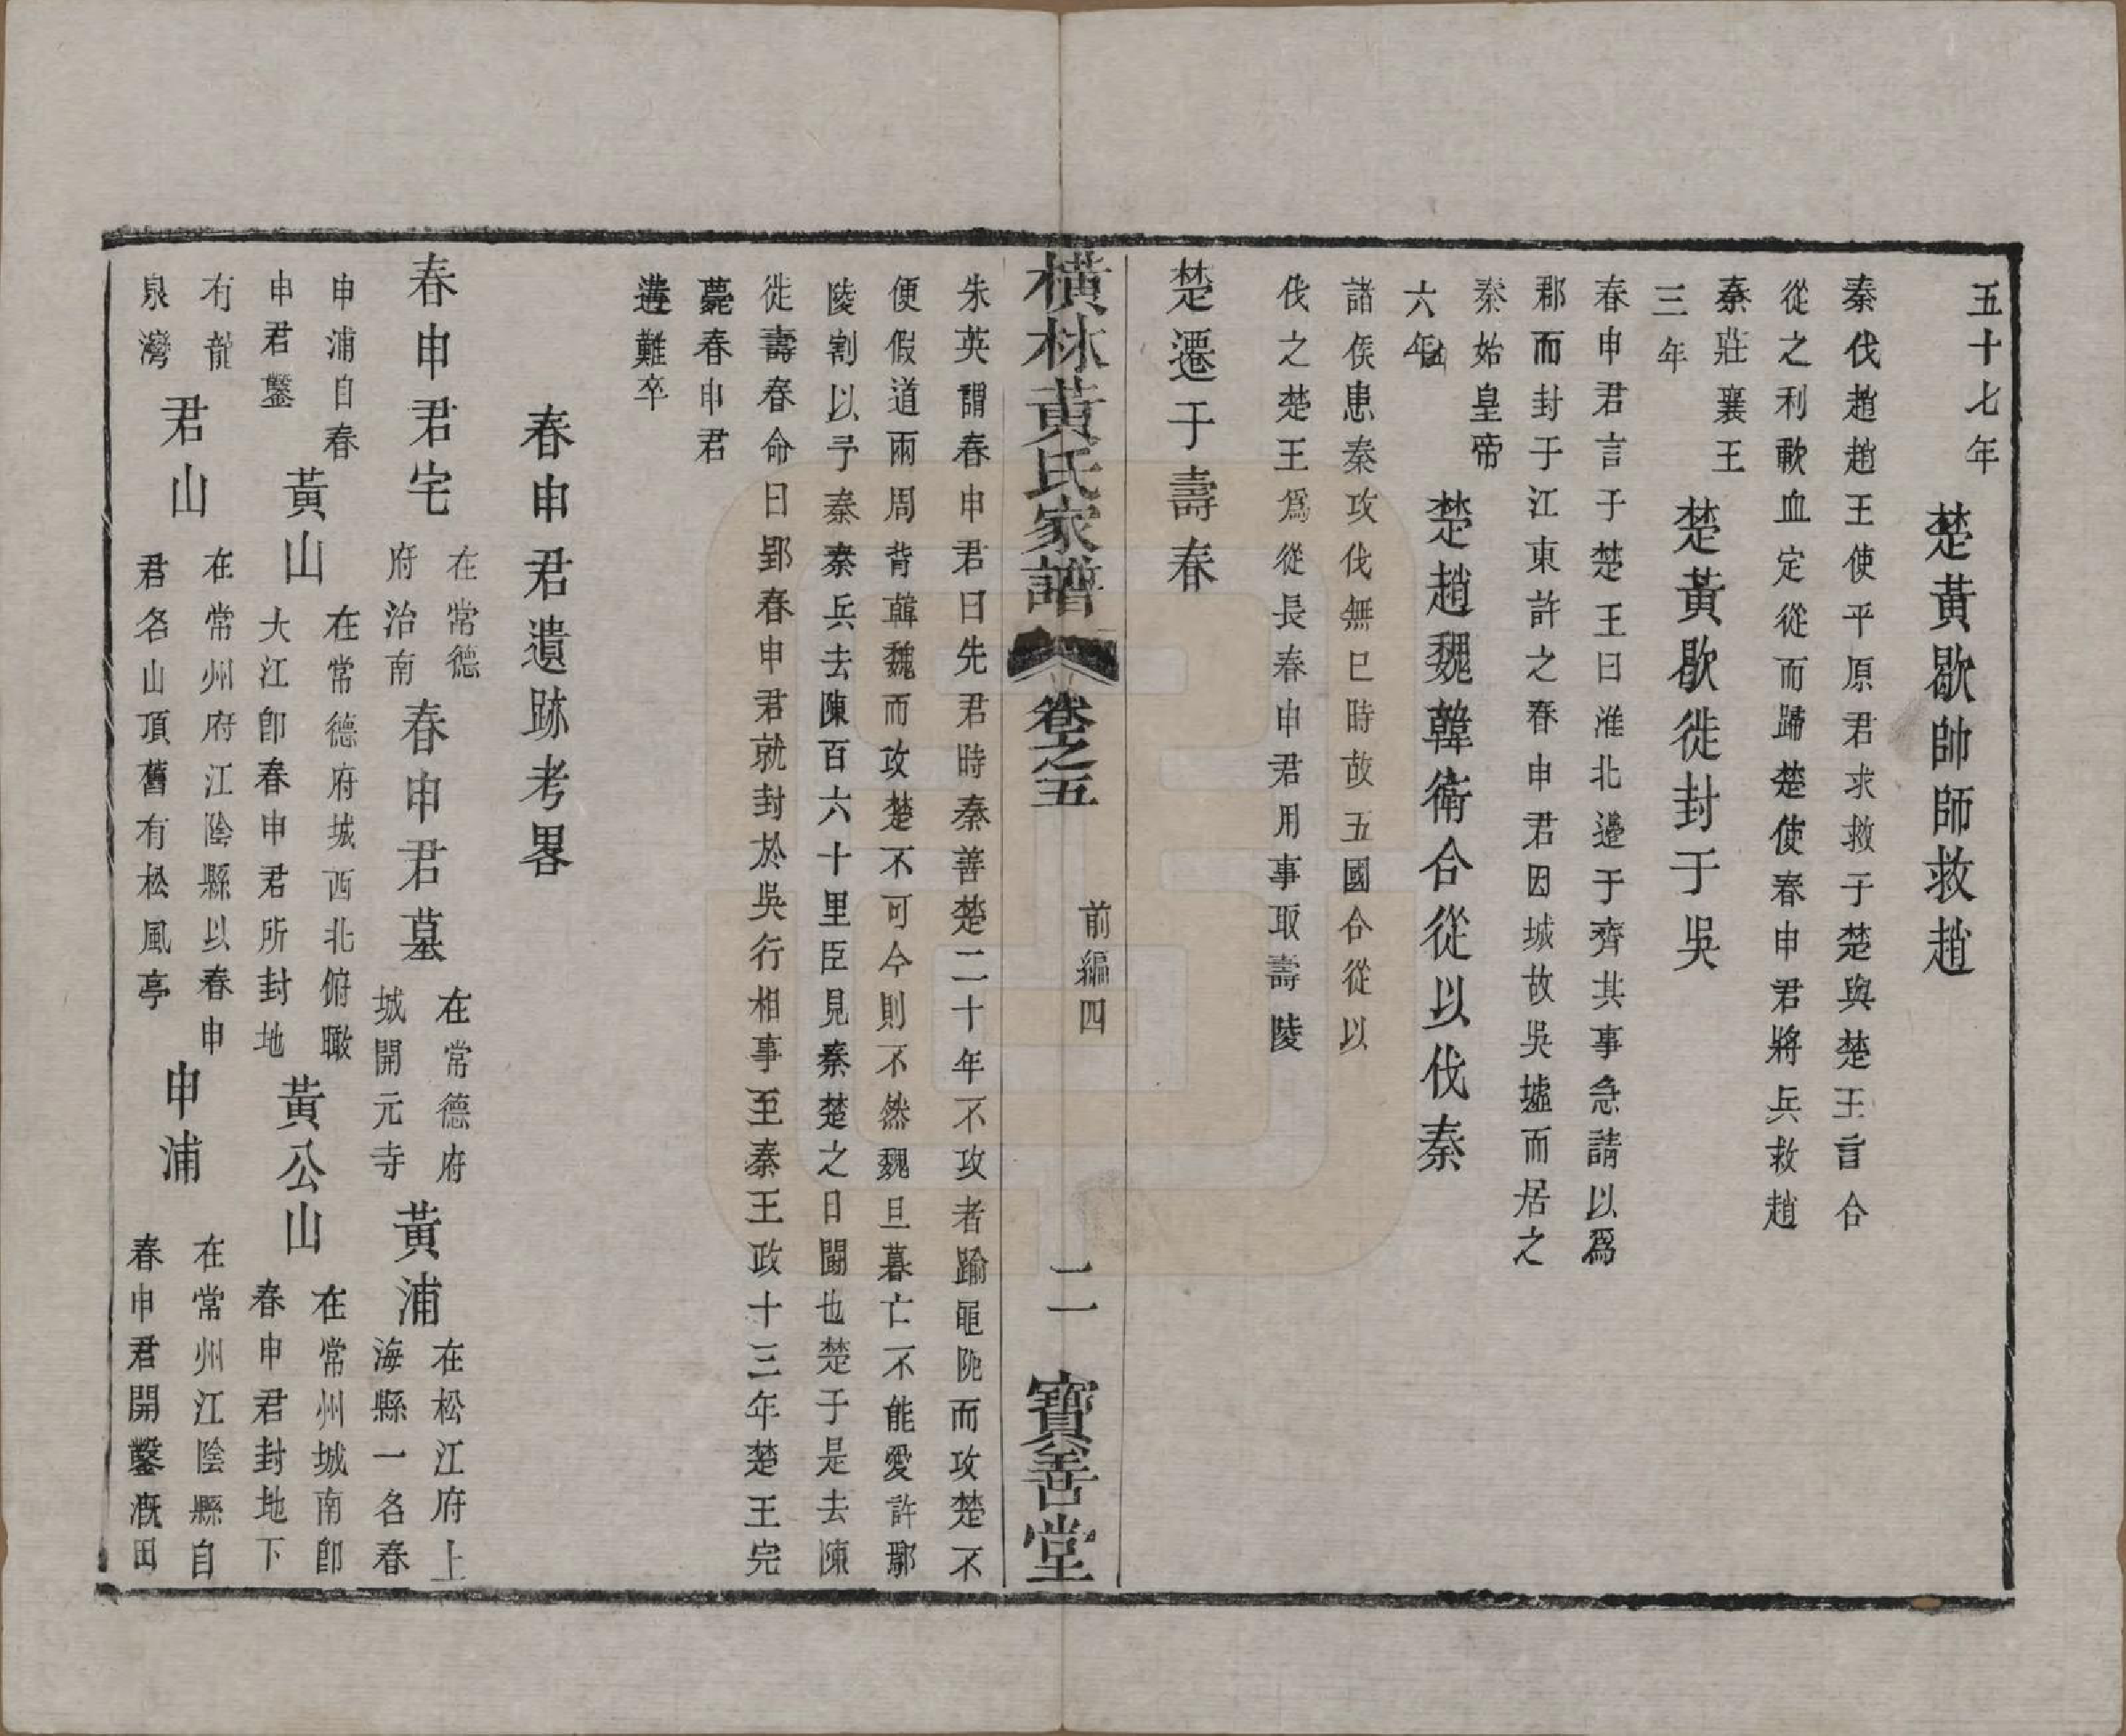 五十七年　楚黃歇帥師救趙
秦伐趙趙王使平原君求救于楚與楚王言合
從之利歃血定從而歸楚使春申君將兵救趙
秦莊襄王
三年　楚黃歇徙封于吳
春申君言于楚王曰淮北邊于齊其事急請以爲
郡而封于江東許之春申君因城故吳墟而居之
秦始皇帝
六年　楚趙魏韓衛合從以伐秦
諸侯患秦攻伐無已時故五國合從以
伐之楚王爲從長春申君用事取壽陵
楚遷于壽春
橫林黃氏家譜　卷之五　前編四　二　寶善堂
朱英謂春申君曰先君時秦善楚二十年不攻者踰黽阨而攻楚不
便假道兩周背韓魏而攻楚不可今則不然魏旦暮亡不能愛許鄢
陵割以予秦秦兵去陳百六十里臣見秦楚之日鬭也楚于是去陳
徙壽春命曰郢春申君就封於吳行相事至秦王政十三年楚王完
薨春申君
遘難卒
春申君遺跡考畧
春申君宅　在常德
府治南　春申君墓　在常德府
城開元寺　黃浦　在松江府上
海縣一名春
申浦自春
申君鑿　黃山　在常德府城西北俯瞰
大江卽春申君所封地　黃公山　在常州城南卽
春申君封地下
有龍
泉灣　君山　在常州府江陰縣以春申
君名山頂舊有松風亭　申浦　在常州江陰縣自
春申君開鑿漑田